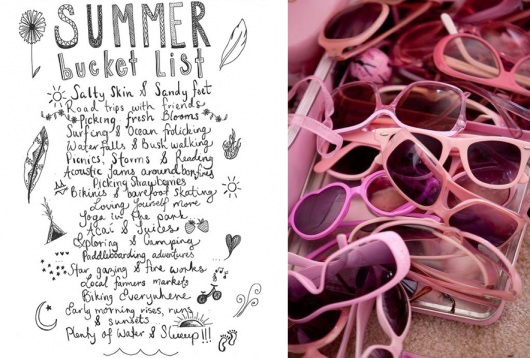 SUMMER
bucket List
Salty Skin & Sandy feet
Road trips with friends
Picking fresh Blooms
Surfing & Ocean frolicking
Waterfalls & Bush walking
Picnics, Storms & Reading
Acoustic Jams around bonfires
Picking Strawberries
Bikinis & barefoot skating
Loving yourself more
Yoga in the park
Acai & Juices
Exploring & Camping
Paddleboarding adventures
Star gazing & fire works
Local farmers markets
Biking Everywhere
Early morning rises, runs
& sunsets
Plenty of Water & Sleep!!!